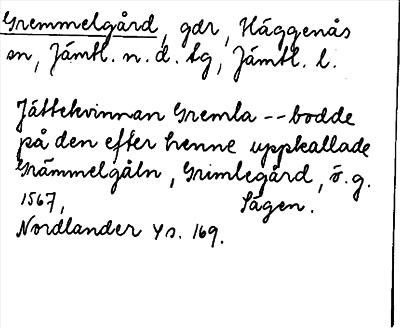 Gremmelgård, gdr, Häggenås
sn, Jämtl. n. d. tg, Jämtl. l.
Jättekvinnan Gremla -- bodde
på den efter henne uppkallade
Grämmelgåln, Grimlegård, ö. g.
1567, Sägen.
Nordlander YS. 169.